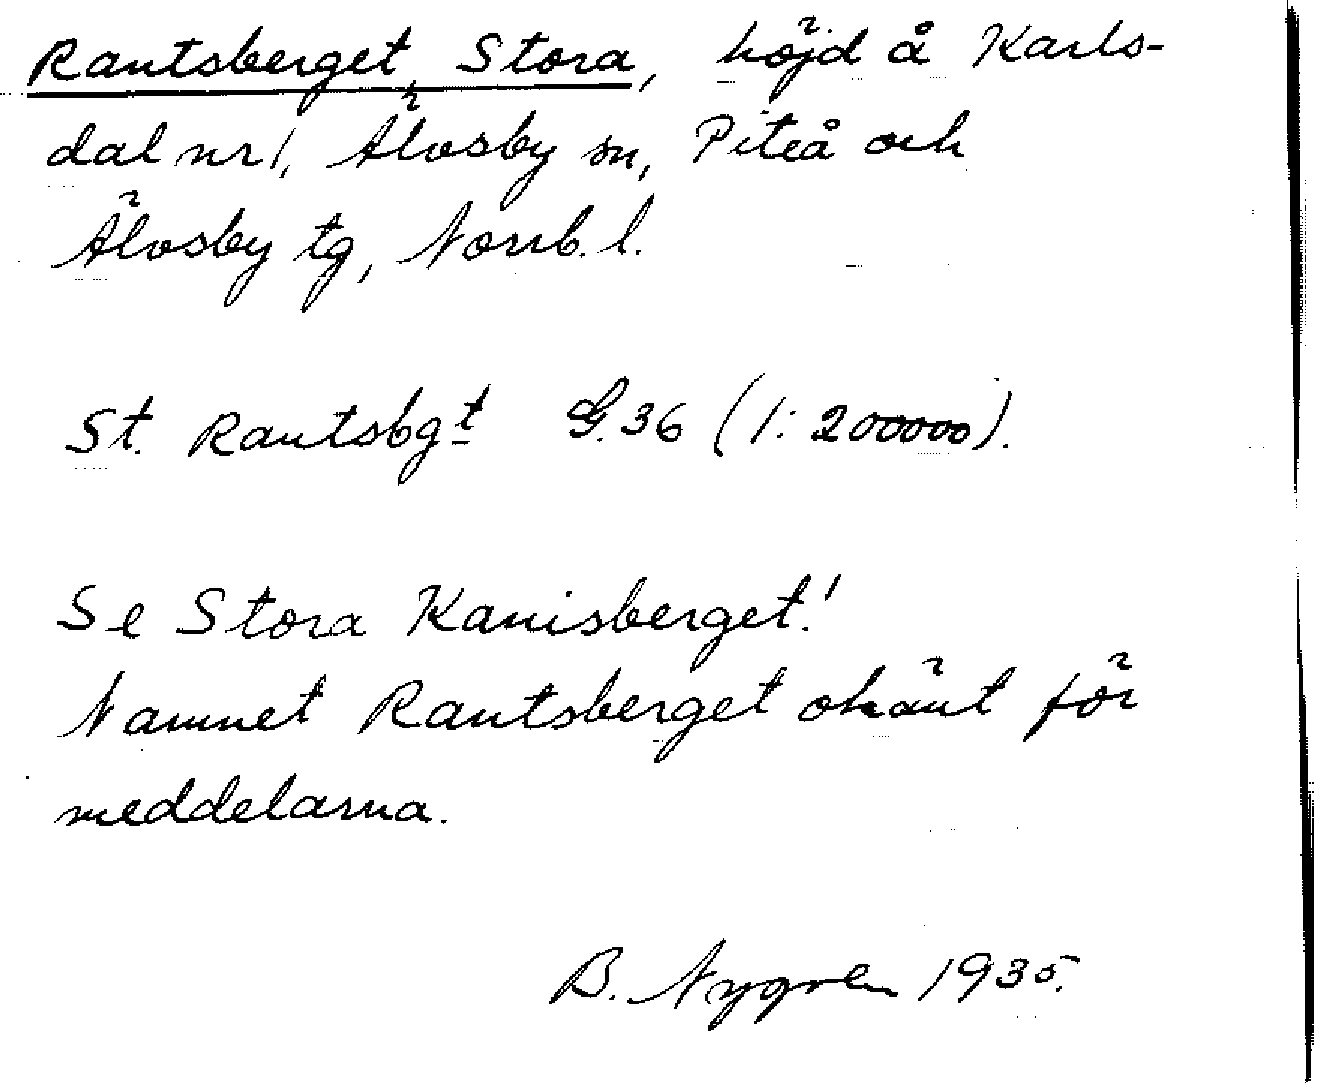 Rautsberget, Stora, höjd å Karls-
dal nr 1, Älvsby sn, Piteå och
Älvsby tg, Norrb. l.
St. Rautsbgt G. 36 (1:200000).
Se Stora Kanisberget!
Namnet Rautsberget okänt för
meddelarna.
B. Nygren 1935.